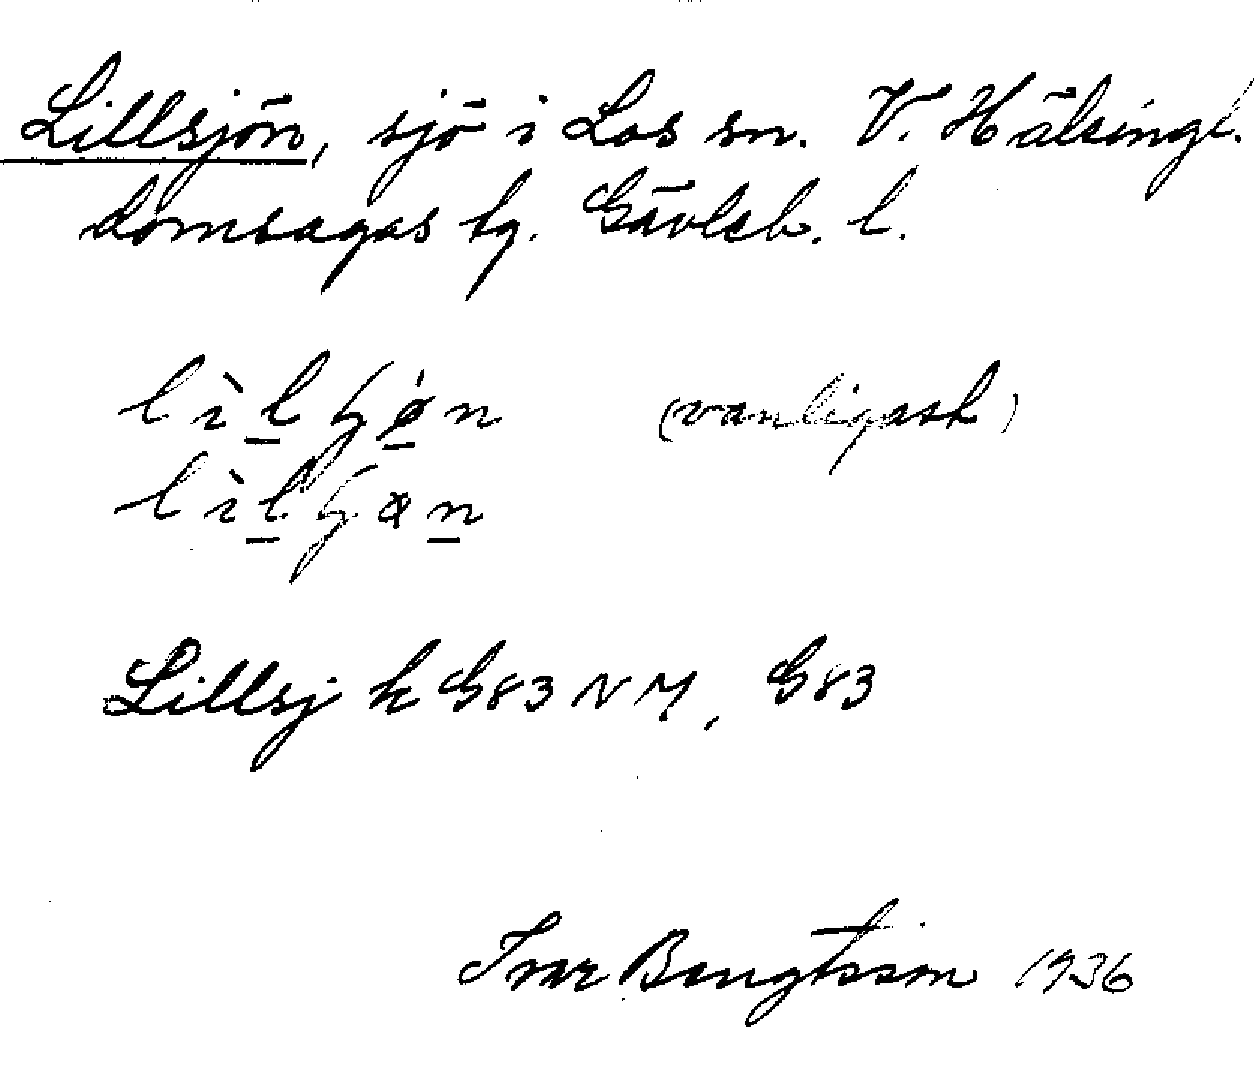 Lillsjön, sjö i Los sn. V. Hälsingl.
domsagas tg. Gävleb. l.
(vanligast)
Lillsj k G83 NM, G83
Ivar Bengtsson 1936